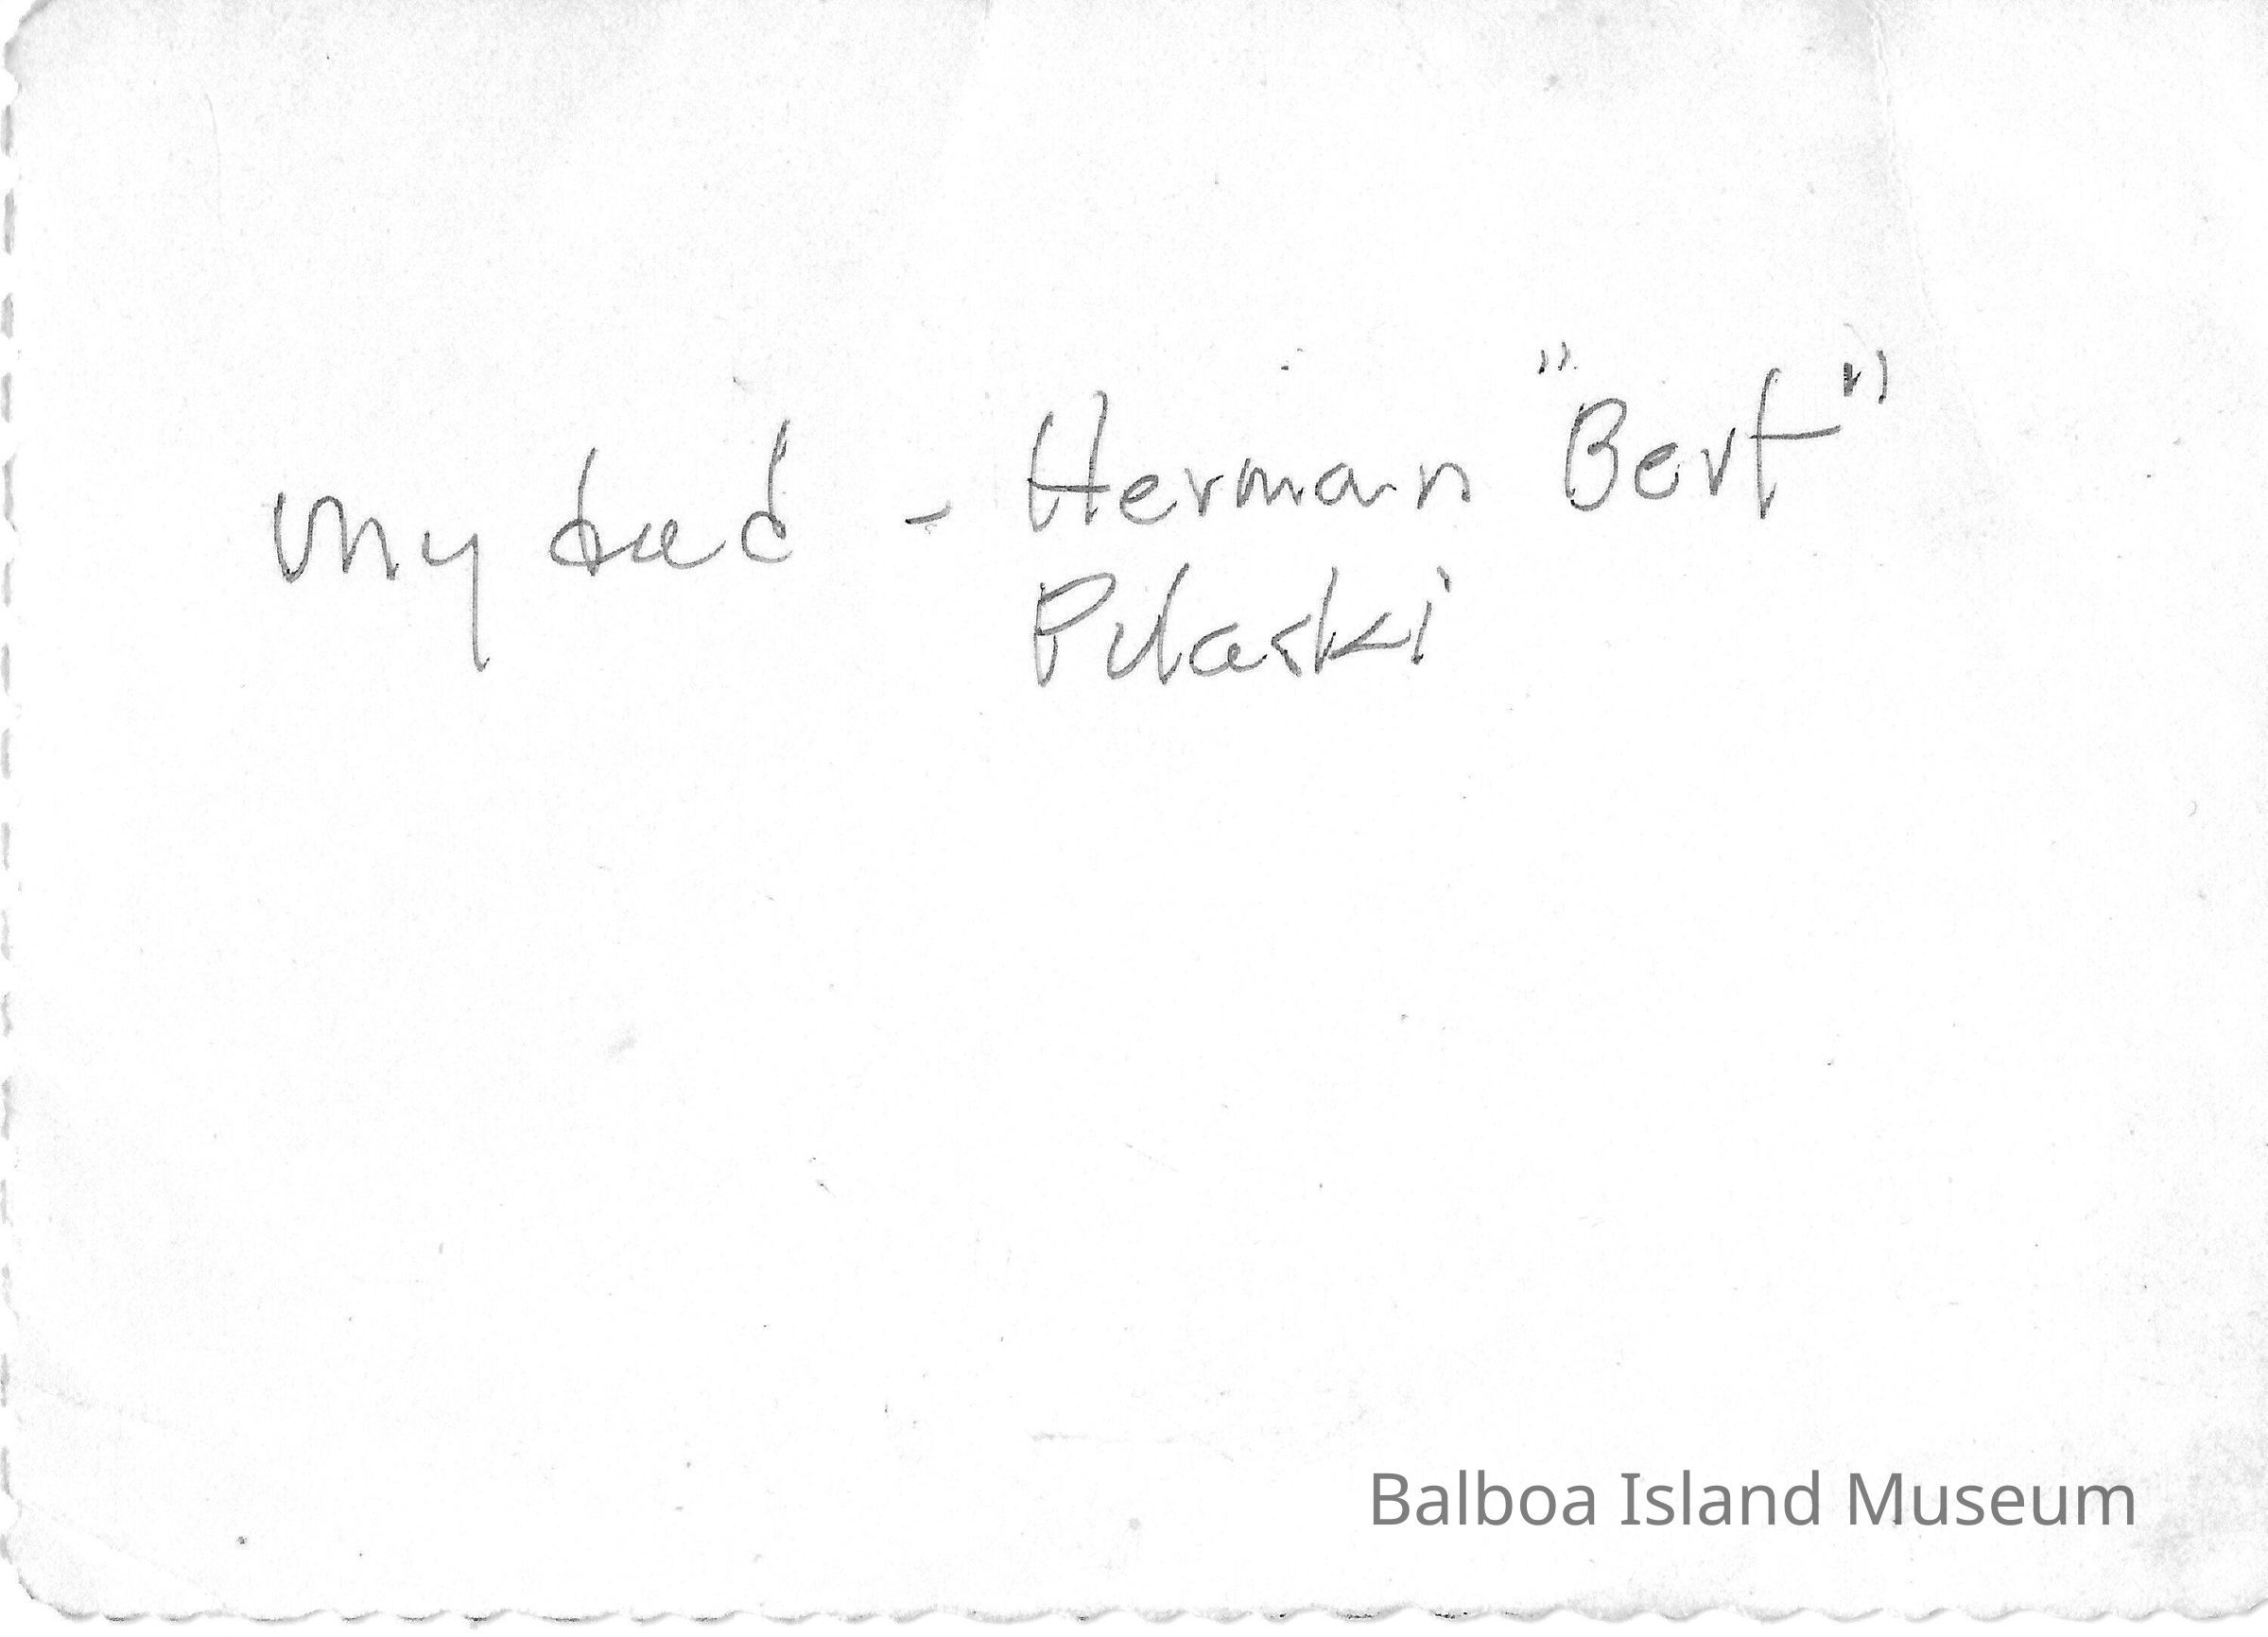 My dad - Herman "Bert"
Pulaski
Balboa Island Museum